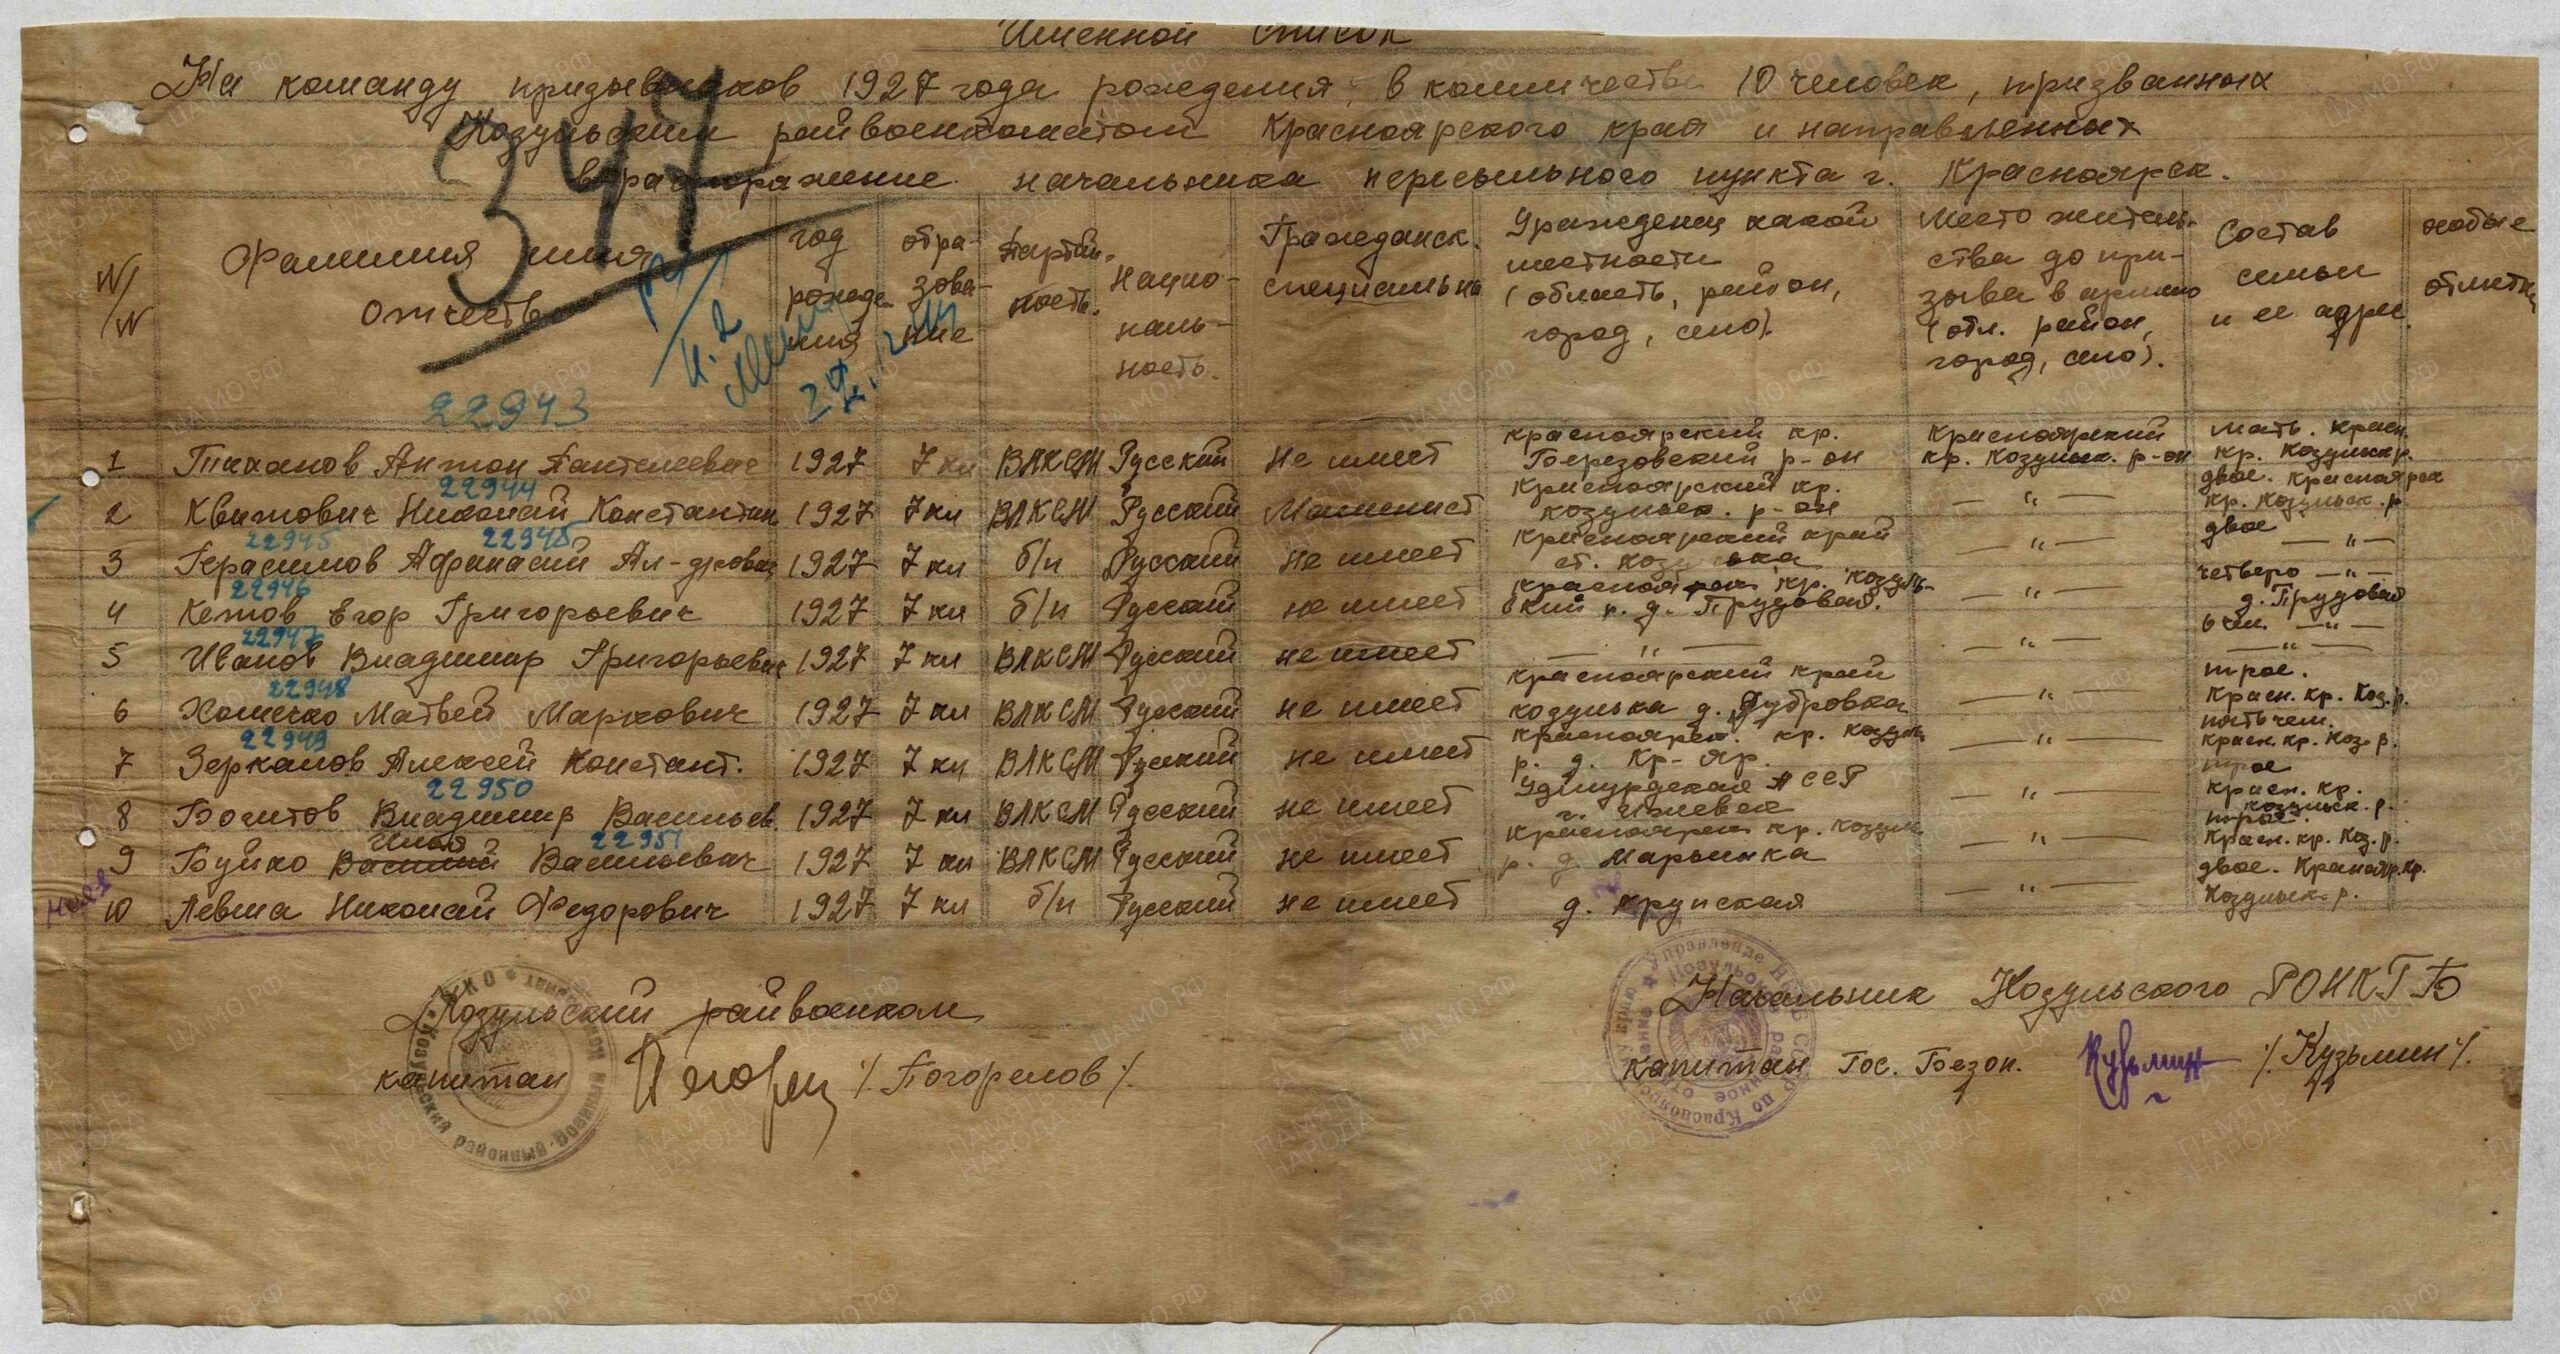 Именной список
На команду призывников 1927 года рождения, в количестве 10 человек, призванных
Козульским райвоенкоматом Красноярского края и направленных
в распоряжение начальника пересыльного пункта г. Красноярск.
347
N/N
Фамилия имя отчеств
год рождения
образование
партийность.
национальность.
Гражданск. специальн
Уроженец какой местности (область, район, город, село).
Место жительства до призыва в армию (обл. район, город, село).
Состав семьи и ее адрес.
особые отметки
22943
1 Тиханов Антон Пантелеевич 1927 7 кл ВЛКСМ Русский не имеет Красноярский кр. Березовский р-он Красноярский кр. Козульск. р-он Мать. Красн. кр. Козульск р.
22944
2 Квитович Николай Константин 1927 7 кл ВЛКСМ Русский Машинист Красноярский кр. Козульск. р-он — " — двое. Красноярск кр. Козульск. р.
22945 22945
3 Герасимов Афанасий Ал-дрович 1927 7 кл б/п Русский не имеет Красноярский край ст. Козулька — " — двое — " —
22946
4 Кетов Егор Григорьевич 1927 7 кл б/п Русский не имеет Красноярск кр. Козульский р. д. Трудовая. — " — четверо — " — д. Трудовая
22947
5 Иванов Владимир Григорьевич 1927 7 кл ВЛКСМ Русский не имеет — " — — " — 6 чел. — " —
22948
6 Хоменко Матвей Маркович 1927 7 кл ВЛКСМ Русский не имеет Красноярский край Козулька д. Дубровка — " — трое. Красн. кр. Коз. р.
22949
7 Зеркалов Алексей Констант. 1927 7 кл ВЛКСМ Русский не имеет Красноярск. кр. Козуль р. д. Кр-Яр. — " — пять чел. Красн. кр. Коз. р.
22950
8 Болитов Владимир Васильев. 1927 7 кл ВЛКСМ Русский не имеет Удмурдская АССР г. Ижевск — " — трое Красн. кр. Козульск. р.
Илья 22951
9 Буйко Василий Васильевич 1927 7 кл ВЛКСМ Русский не имеет Красноярск кр. Козульк р. д. Марьинка — " — трое. Красн. кр. Коз. р.
10 Левша Николай Федорович 1927 7 кл б/п Русский не имеет д. Крутская — " — двое. Краснояр. кр. Козульск. р.
Козульский райвоенком
капитан /.Погорелов/.
Начальник Козульского РОНКГБ
капитан Гос. Безоп. Кузьмин /.Кузьмин/.
НКО
Козульский районный военный комиссариат
ЦАМО.РФ
ПАМЯТЬ НАРОДА